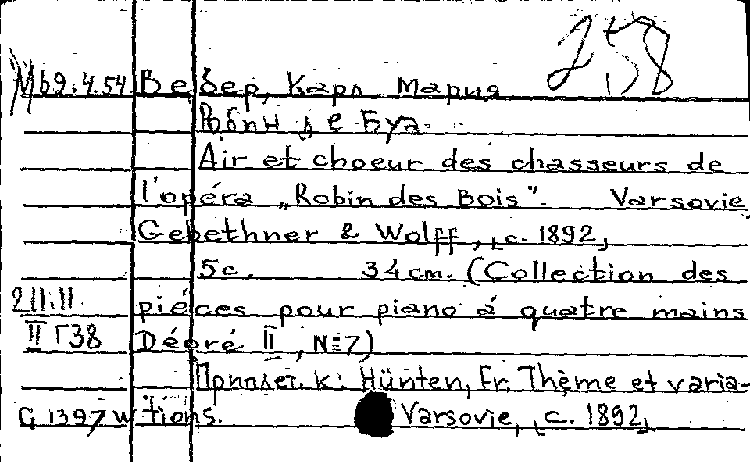 258
Мb9.4.54 Вебер, Карл Мария
Робин де Буа.
Air et choeur des chasseurs de
l'opéra „Robin des Bois". Varsovie,
Gebethner & Wolff, [c. 1892]
5c. 34 cm. (Collection des
211.11. piéces pour piano á quatre mains
II Г38 Dégré II, N=7)
Приплет. к: Hünten, Fr. Thème et varia-
G 1397 w tions. Varsovie, [c. 1892]